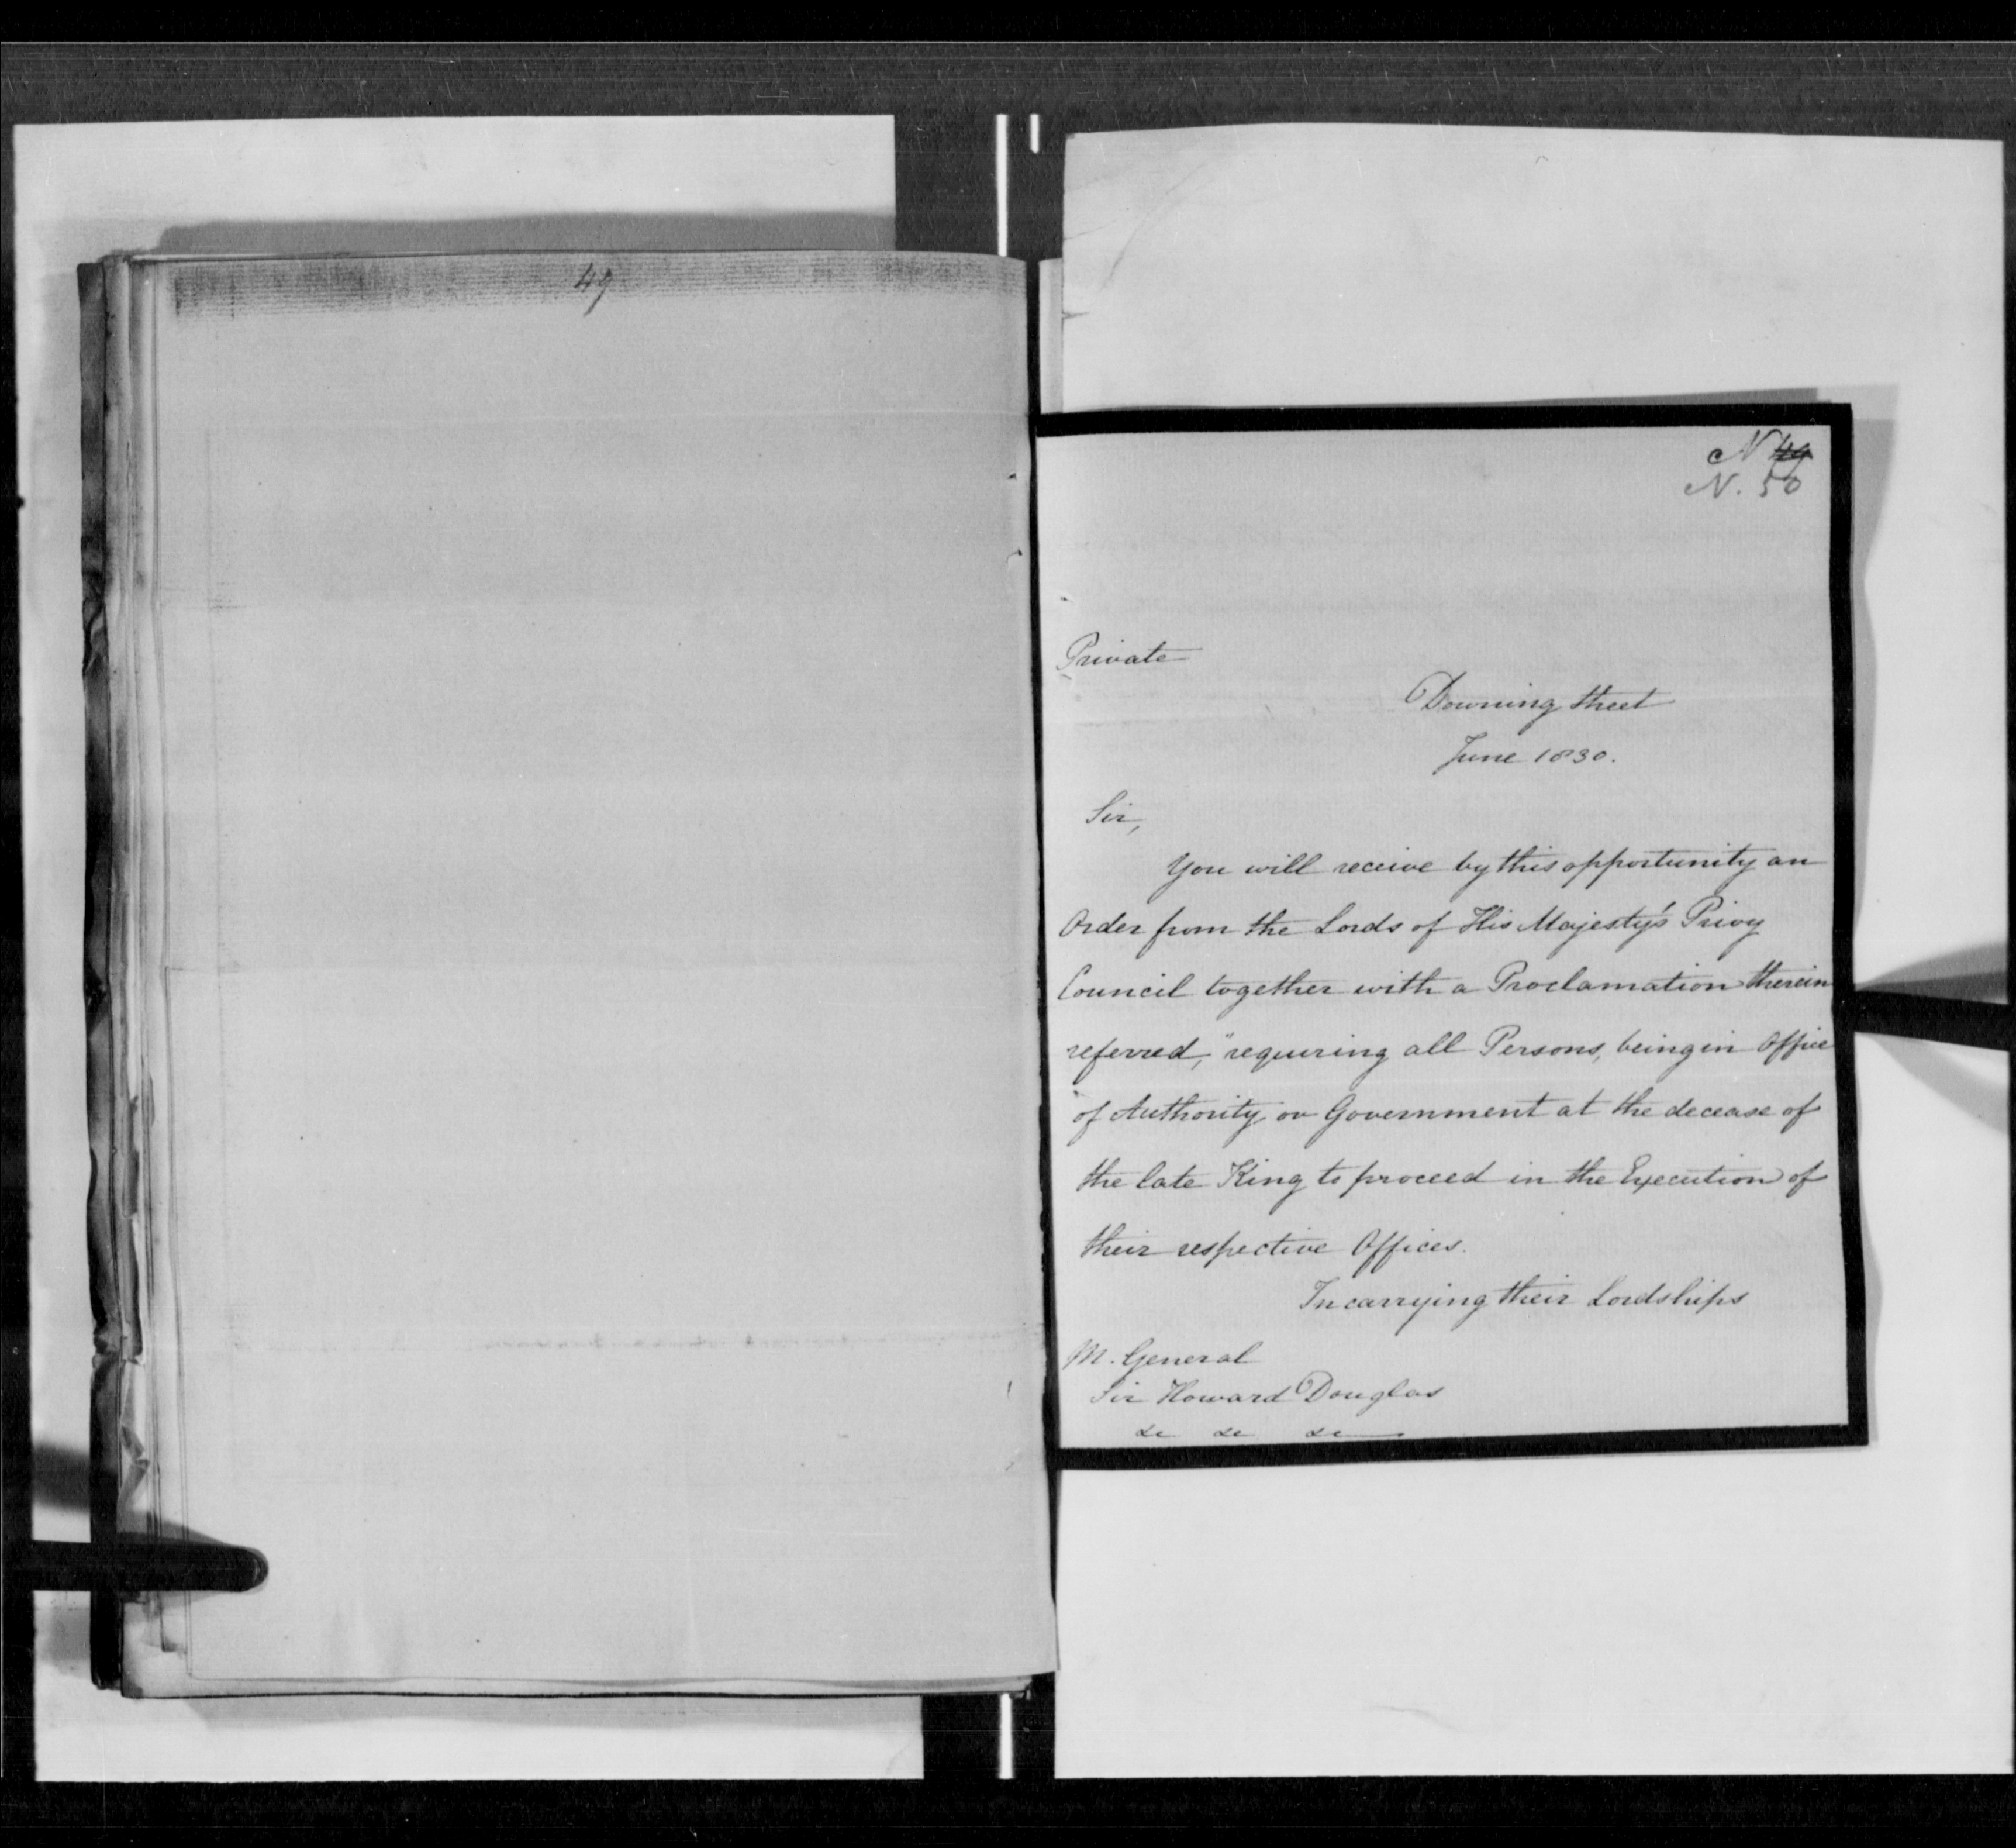 49
N 49
N. 50
Private
Downing Street
June 1830.
Sir,
You will receive by this opportunity an
Order from the Lords of His Majesty's Privy
Council together with a Proclamation therein
referred, "requiring all Persons, being in Office
"of Authority or Government at the decease of
the late King to proceed in the Execution of
their respective Offices.
In carrying their Lordships
M. General
Sir Howard Douglas
&c &c &c